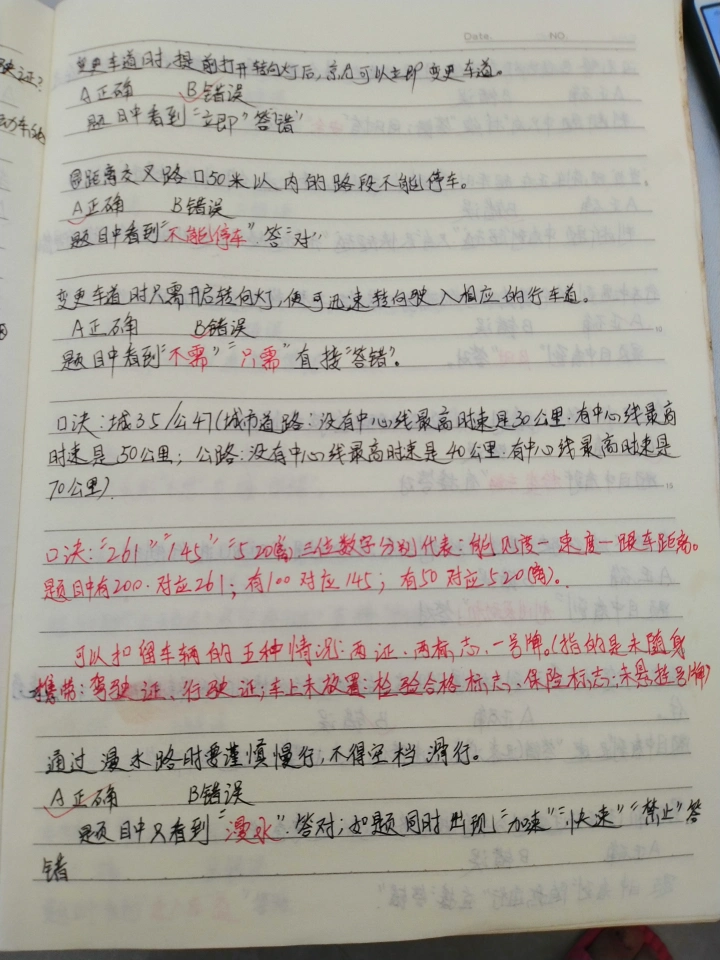 Date. NO.
驶证?
变更车道时,提前打开转向灯后,就可以立即变更车道。
A正确 B错误
题目中看到“立即”答“错”
距离交叉路口50米以内的路段不能停车。
A正确 B错误
题目中看到“不能停车”.答“对”
变更车道时只需开启转向灯,便可迅速转向驶入相应的行车道。
A正确 B错误
题目中看到“不需”“只需”直接“答错”。
口决:城35/公47(城市道路:没有中心线最高时速是30公里.有中心线最高
时速是50公里;公路:没有中心线最高时速是40公里.有中心线最高时速是
70公里)
口决:“261”“145”“520(离)三位数字分别代表:能见度一速度一跟车距离。
题目中有200.对应261;有100对应145;有50对应520(离)。
可以扣留车辆的五种情况:两证、两标志、一号牌。(指的是未随身
携带:驾驶证、行驶证;车上未放置:检验合格标志、保险标志.未悬挂号牌)
通过漫水路时要谨慎慢行,不得空档滑行。
A正确 B错误
题目中只看到“漫水”.答对;如题同时出现“加速”“快速”“禁止”答
错